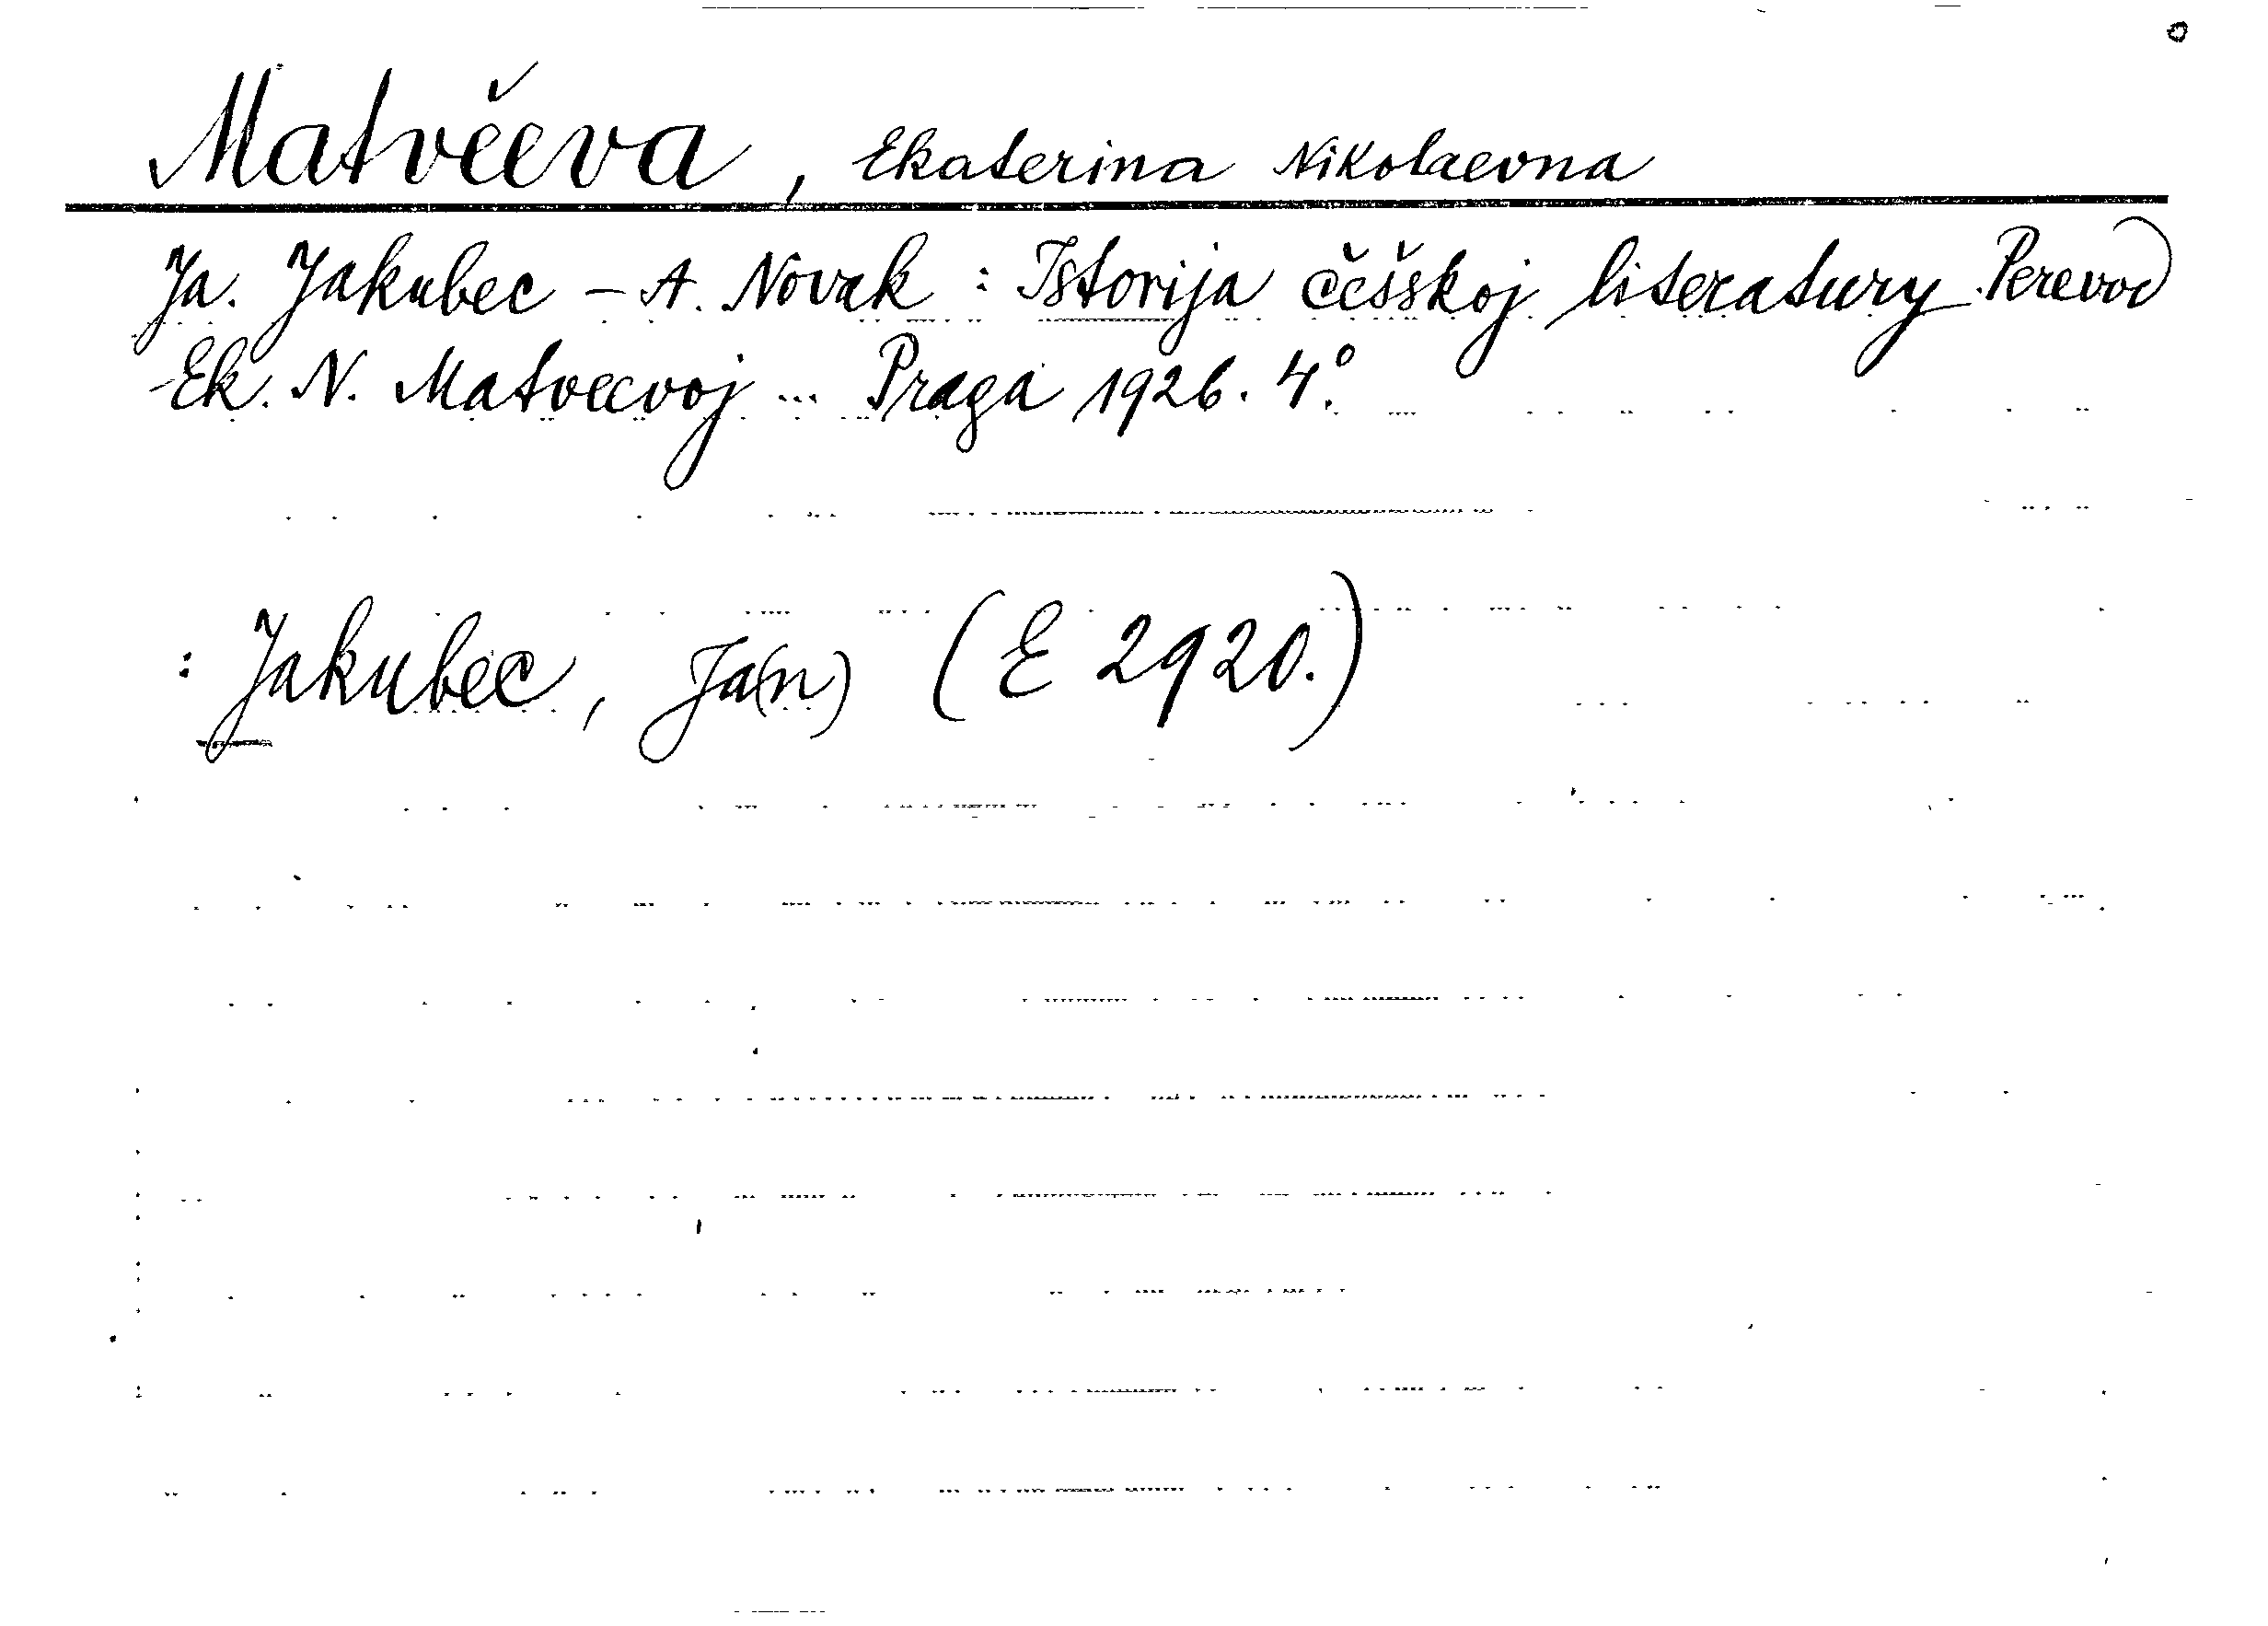 Matvěeva, Ekaterina Nikolaevna
Ja. Jakubec - A. Novak : Istorija češskoj literatury. Perevod
Ek. N. Matveevoj ... Praga 1926. 4°.
: Jakubec, Ja(n) (E 2920.)